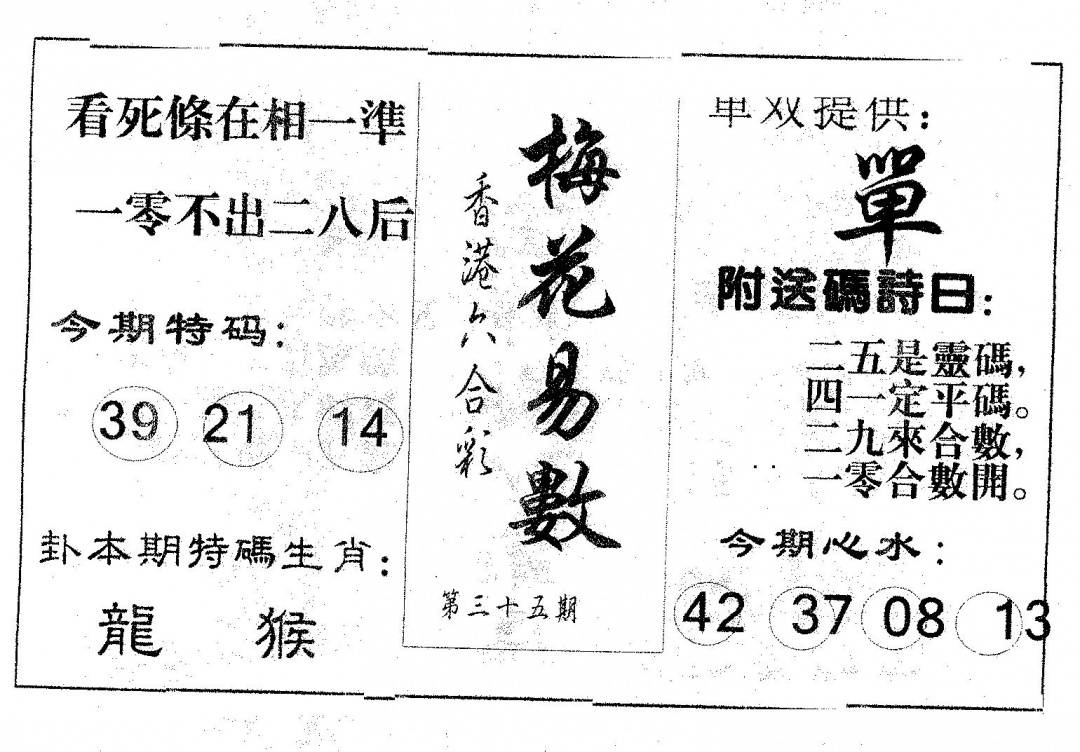 看死條在相一準
一零不出二八后
今期特码：
39 21 14
卦本期特碼生肖：
龍 猴
梅花易數
香港六合彩
第三十五期
单双提供：
單
附送碼詩曰：
二五是靈碼，
四一定平碼。
二九來合數，
一零合數開。
今期心水：
42 37 08 13